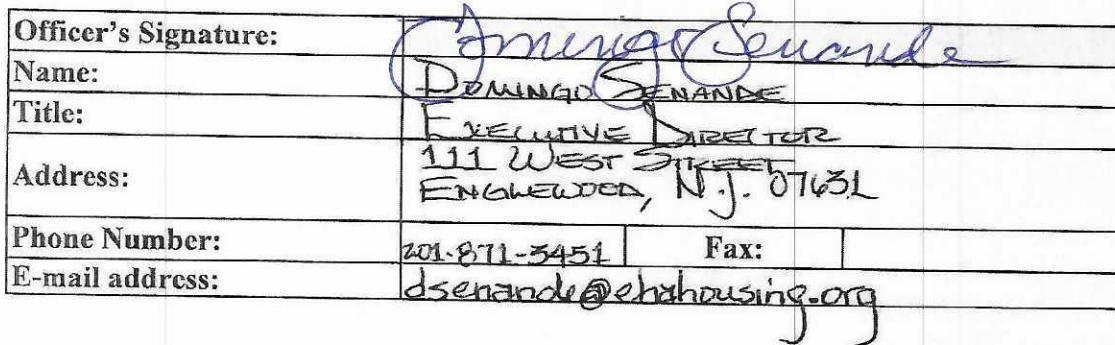 Officer's Signature: Domingo Senande
Name: DOMINGO SENANDE
Title: EXECUTIVE DIRECTOR
Address: 111 WEST STREET
ENGLEWOOD, N.J. 07631
Phone Number: 201-871-3451 Fax:
E-mail address: dsenande@ehahousing.org